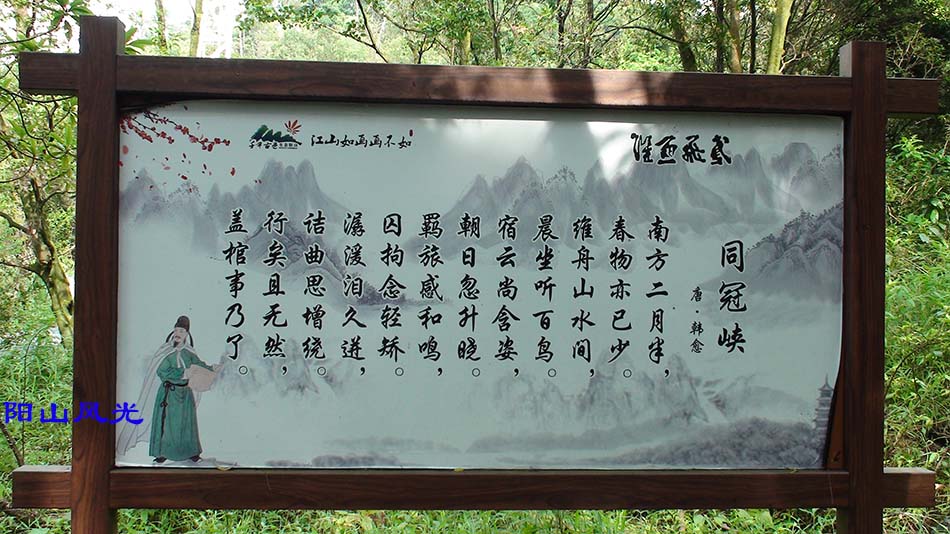 江山如画画不如
同冠峡
唐·韩愈
南方二月半，
春物亦已少。
维舟山水间，
晨坐听百鸟。
宿云尚含姿，
朝日忽升晓。
羁旅感和鸣，
囚拘念轻矫。
潺湲泪久迸，
诘曲思增绕。
行矣且无然，
盖棺事乃了。
阳山风光